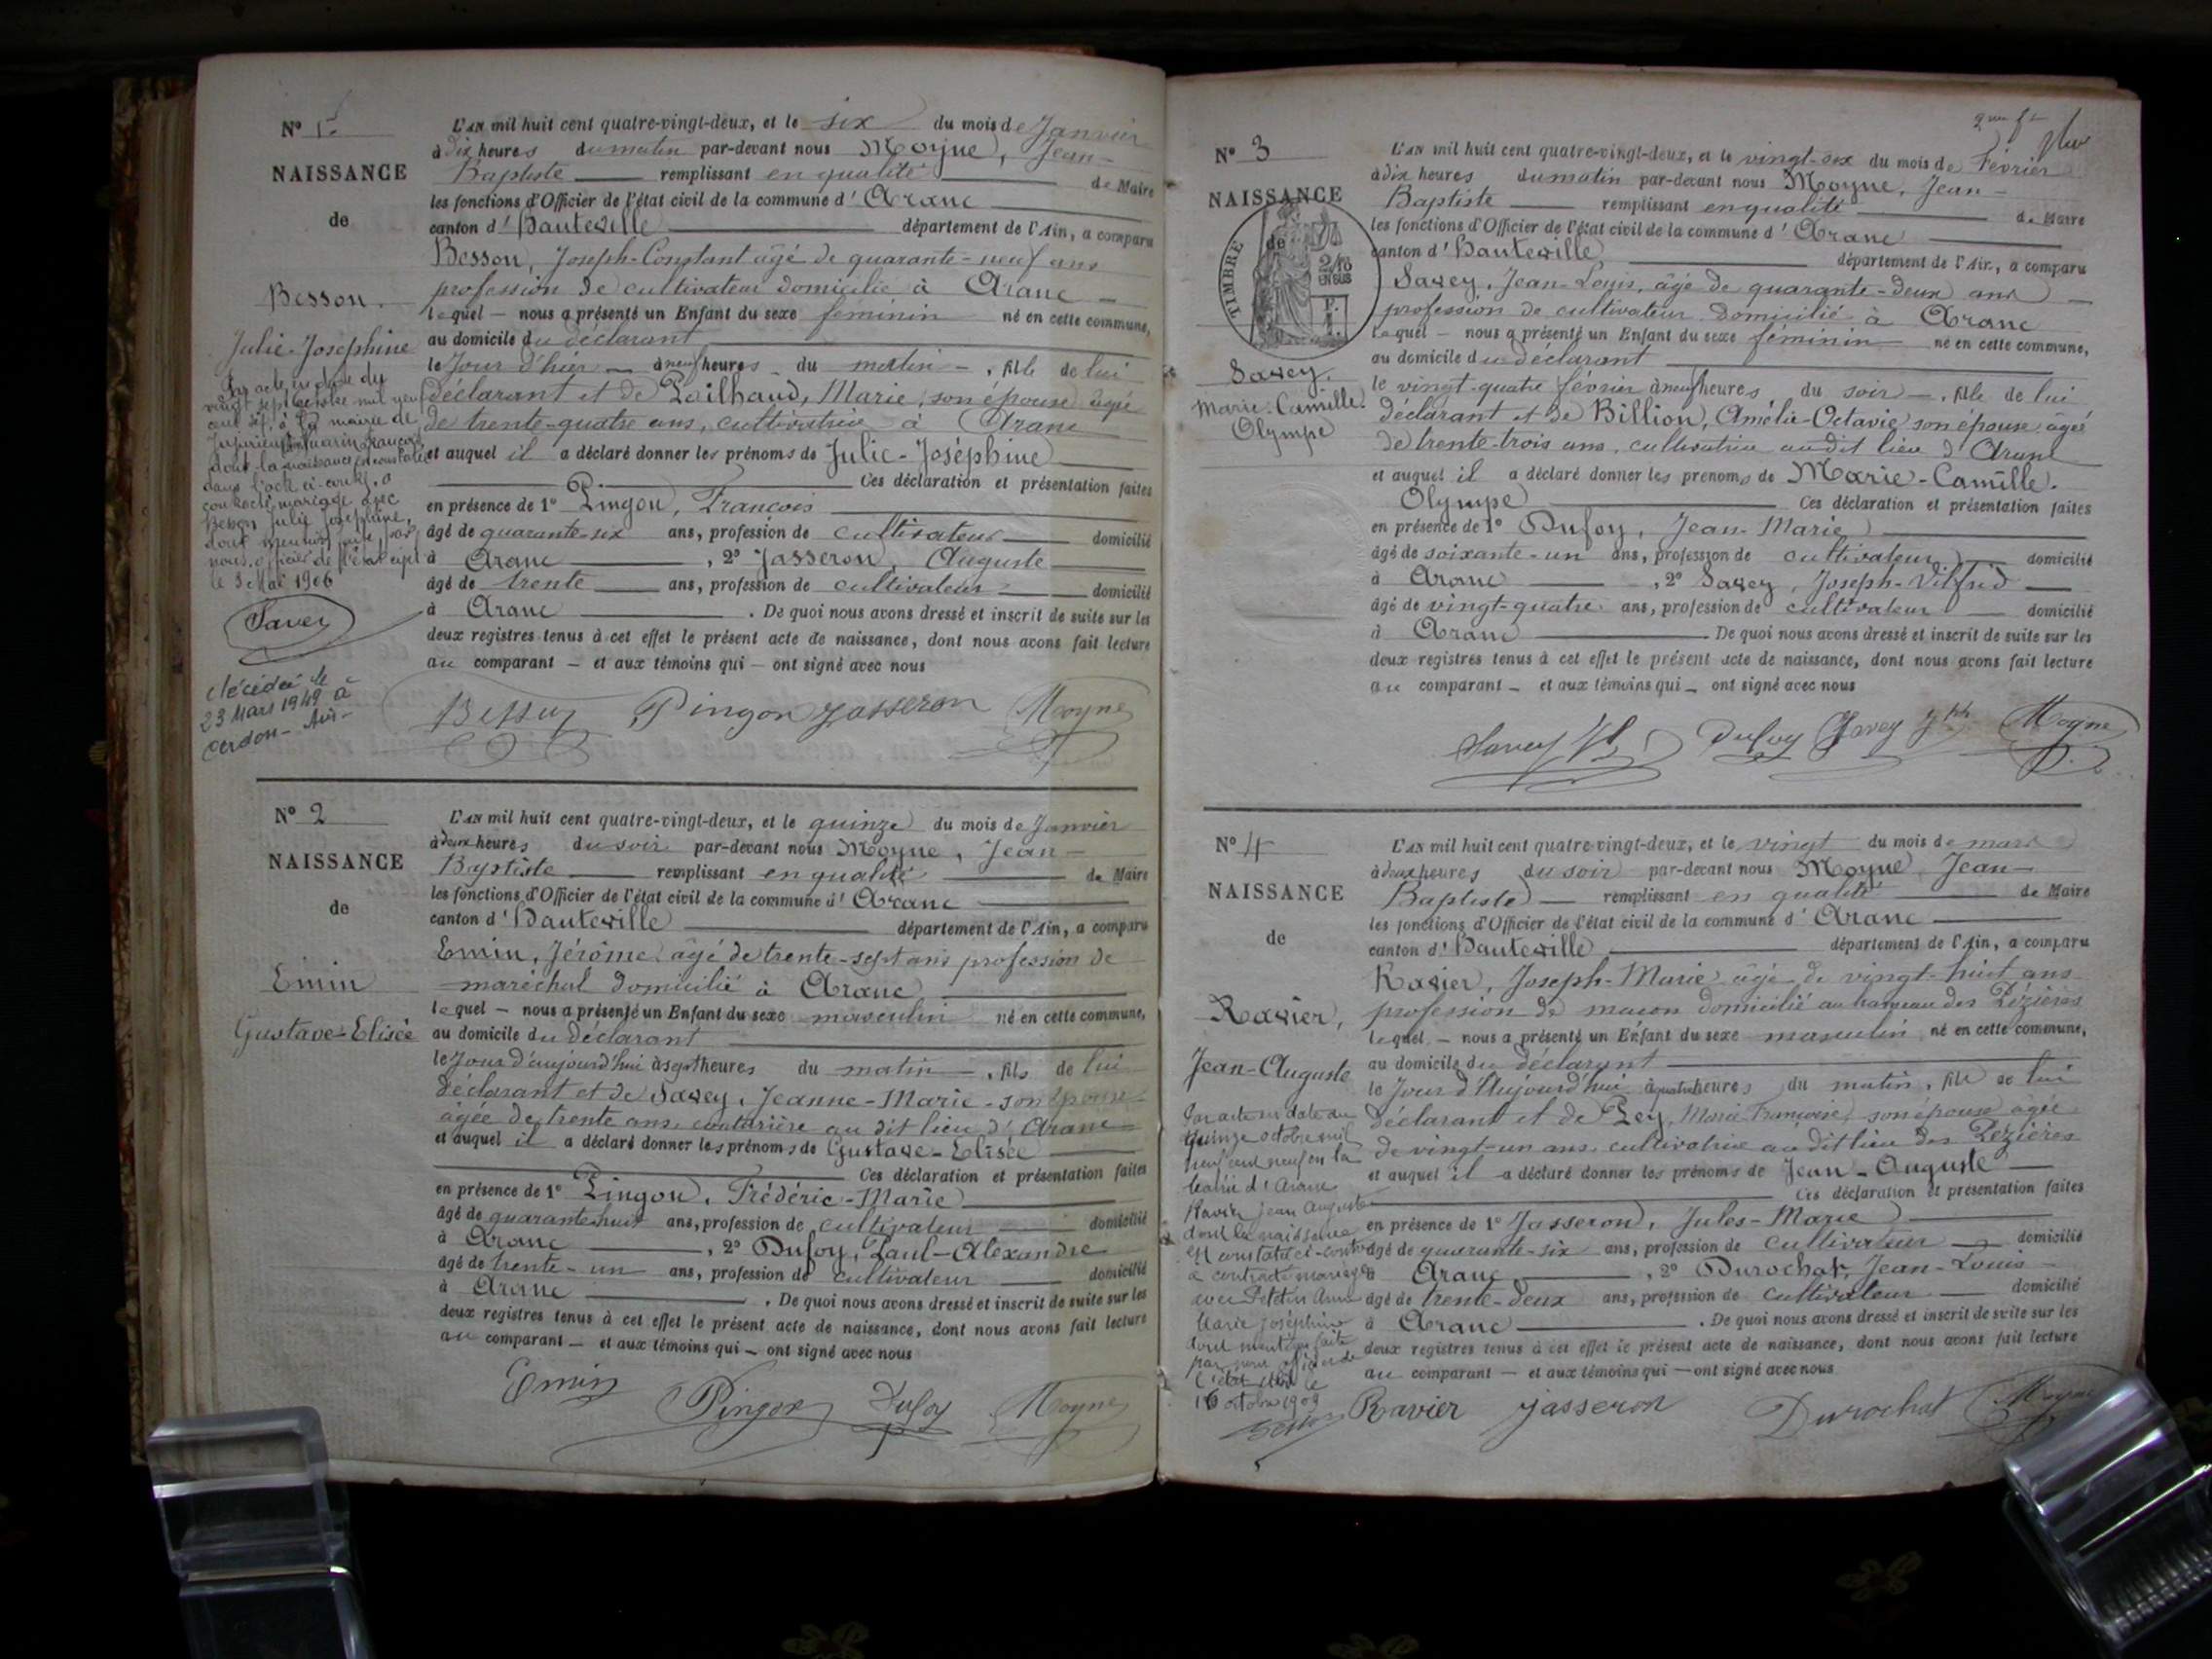 N° 1
NAISSANCE
de
Besson.
Julie-Joséphine
Par acte en date du
vingt sept octobre mil neuf
cent , à la mairie de
Jujurieux
dont la naissance est constatée
dans l'acte ci-contre, a
contracté mariage avec
Besson Julie Joséphine,
dont mention faite par
nous, officier de l'état civil
le 3 Mai 1906
Savey
décédée le
23 Mars 1949 à
Cerdon - Ain -
L'AN mil huit cent quatre-vingt-deux, et le six du mois de Janvier
à dix heures du matin par-devant nous Moyne, Jean-
Baptiste remplissant en qualité de Maire
les fonctions d'Officier de l'état civil de la commune d' Aranc
canton d' Hauteville département de l'Ain, a comparu
Besson, Joseph-Constant âgé de quarante-neuf ans
profession de cultivateur domicilié à Aranc
lequel nous a présenté un Enfant du sexe féminin né en cette commune,
au domicile du déclarant
le Jour d'hier à neuf heures du matin, fille de lui
déclarant et de Pailhaud, Marie, son épouse âgée
de trente-quatre ans, cultivatrice à Aranc
et auquel il a déclaré donner les prénoms de Julie-Joséphine
Ces déclaration et présentation faites
en présence de 1° Pingon, François
âgé de quarante-six ans, profession de cultivateur domicilié
à Aranc, 2° Jasseron, Auguste
âgé de trente ans, profession de cultivateur domicilié
à Aranc. De quoi nous avons dressé et inscrit de suite sur les
deux registres tenus à cet effet le présent acte de naissance, dont nous avons fait lecture
au comparant et aux témoins qui ont signé avec nous
Besson Pingon Jasseron Moyne
N° 2
NAISSANCE
de
Emin
Gustave-Elisée
L'AN mil huit cent quatre-vingt-deux, et le quinze du mois de Janvier
à deux heures du soir par-devant nous Moyne, Jean-
Baptiste remplissant en qualité de Maire
les fonctions d'Officier de l'état civil de la commune d' Aranc
canton d' Hauteville département de l'Ain, a comparu
Emin, Jérôme âgé de trente-sept ans profession de
maréchal domicilié à Aranc
lequel nous a présenté un Enfant du sexe masculin né en cette commune,
au domicile du déclarant
le Jour d'aujourd'hui à sept heures du matin, fils de lui
déclarant et de Savey, Jeanne-Marie - son épouse
âgée de trente ans, couturière au dit lieu d'Aranc
et auquel il a déclaré donner les prénoms de Gustave-Elisée
Ces déclaration et présentation faites
en présence de 1° Pingon, Frédéric-Marie
âgé de quarante-huit ans, profession de cultivateur domicilié
à Aranc, 2° Dufoy, Paul-Alexandre
âgé de trente-un ans, profession de cultivateur domicilié
à Aranc. De quoi nous avons dressé et inscrit de suite sur les
deux registres tenus à cet effet le présent acte de naissance, dont nous avons fait lecture
au comparant et aux témoins qui ont signé avec nous
Emin Pingon Dufoy Moyne
N° 3
NAISSANCE
de
TIMBRE
Savey.
Marie-Camille.
Olympe
L'AN mil huit cent quatre-vingt-deux, et le vingt-six du mois de Février
à dix heures du matin par-devant nous Moyne, Jean-
Baptiste remplissant en qualité de Maire
les fonctions d'Officier de l'état civil de la commune d' Aranc
canton d' Hauteville département de l'Ain, a comparu
Savey, Jean-Louis, âgé de quarante-deux ans
profession de cultivateur domicilié à Aranc
lequel nous a présenté un Enfant du sexe féminin né en cette commune,
au domicile du déclarant
le vingt-quatre février à neuf heures du soir, fille de lui
déclarant et de Billion, Amélie-Octavie son épouse âgée
de trente-trois ans, cultivatrice audit lieu d'Aranc
et auquel il a déclaré donner les prénoms de Marie-Camille.
Olympe Ces déclaration et présentation faites
en présence de 1° Dufoy, Jean-Marie
âgé de soixante-un ans, profession de cultivateur domicilié
à Aranc, 2° Savey, Joseph-Vilfrid
âgé de vingt-quatre ans, profession de cultivateur domicilié
à Aranc. De quoi nous avons dressé et inscrit de suite sur les
deux registres tenus à cet effet le présent acte de naissance, dont nous avons fait lecture
au comparant et aux témoins qui ont signé avec nous
Savey Dufoy Savey Jph Moyne
N° 4
NAISSANCE
de
Ravier,
Jean-Auguste
Par acte en date du
quinze octobre mil
neuf cent neuf en la
Mairie d'Aranc
Ravier Jean Auguste
dont la naissance
est constatée ci-contre
a contracté mariage
avec Petetin Anna
Marie Joséphine
dont mention faite
par nous officier de
l'état civil le
16 octobre 1909
L'AN mil huit cent quatre-vingt-deux, et le vingt du mois de mars
à deux heures du soir par-devant nous Moyne Jean-
Baptiste remplissant en qualité de Maire
les fonctions d'Officier de l'état civil de la commune d' Aranc
canton d' Hauteville département de l'Ain, a comparu
Ravier, Joseph-Marie âgé de vingt-huit ans
profession de maçon domicilié au hameau des Pézières
lequel nous a présenté un Enfant du sexe masculin né en cette commune,
au domicile du déclarant
le Jour d'Aujourd'hui à quatre heures du matin, fils de lui
déclarant et de Pey, Marie Françoise, son épouse âgée
de vingt-un ans, cultivatrice au dit lieu des Pézières
et auquel il a déclaré donner les prénoms de Jean-Auguste
Ces déclaration et présentation faites
en présence de 1° Jasseron, Jules-Marie
âgé de quarante-six ans, profession de cultivateur domicilié
à Aranc, 2° Durochat, Jean-Louis
âgé de trente-deux ans, profession de cultivateur domicilié
à Aranc. De quoi nous avons dressé et inscrit de suite sur les
deux registres tenus à cet effet le présent acte de naissance, dont nous avons fait lecture
au comparant et aux témoins qui ont signé avec nous
Ravier Jasseron Durochat Moyne